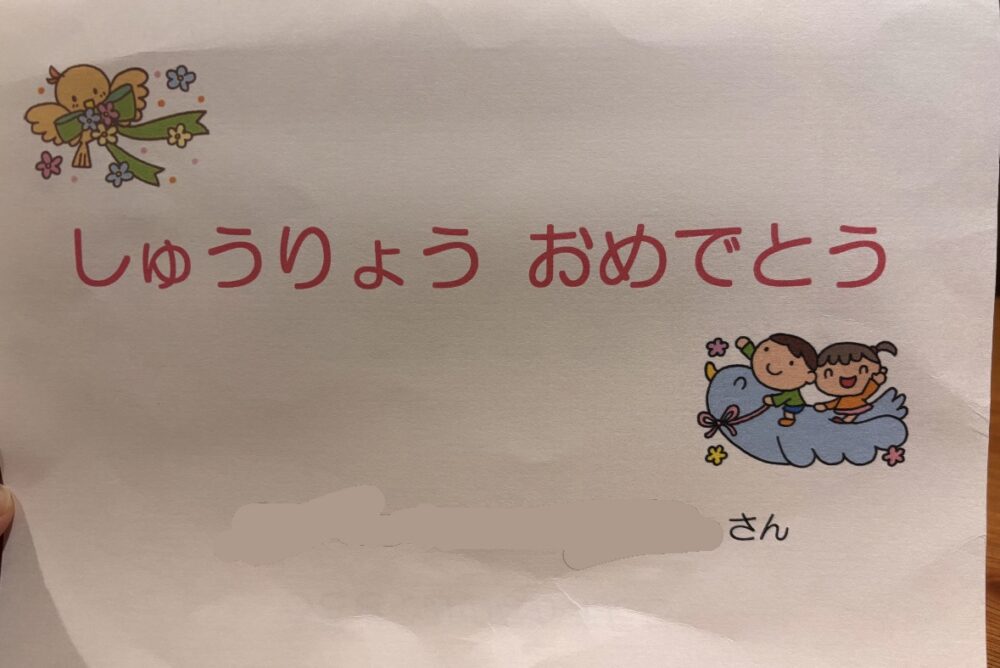 しゅうりょう おめでとう
さん